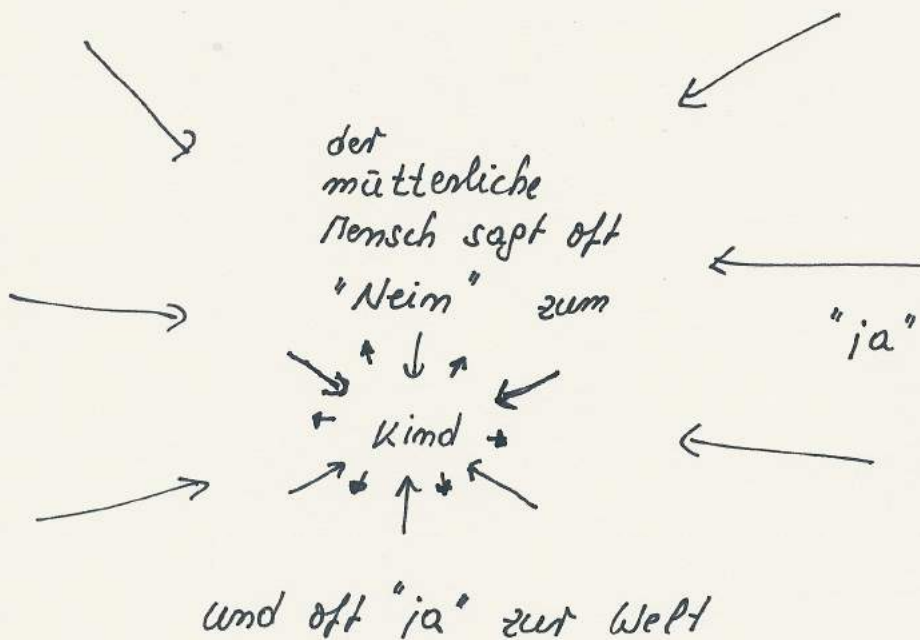 der
mütterliche
Mensch sagt oft
"Nein" zum
"ja"
Kind
und oft "ja" zur Welt